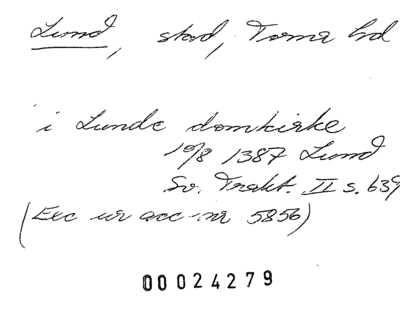 Lund, stad, Torna hd
i Lunde domkirke
10/8 1387 Lund
Sv. Trakt. II s. 639
(Exc ur acc-nr 5856)
00024279